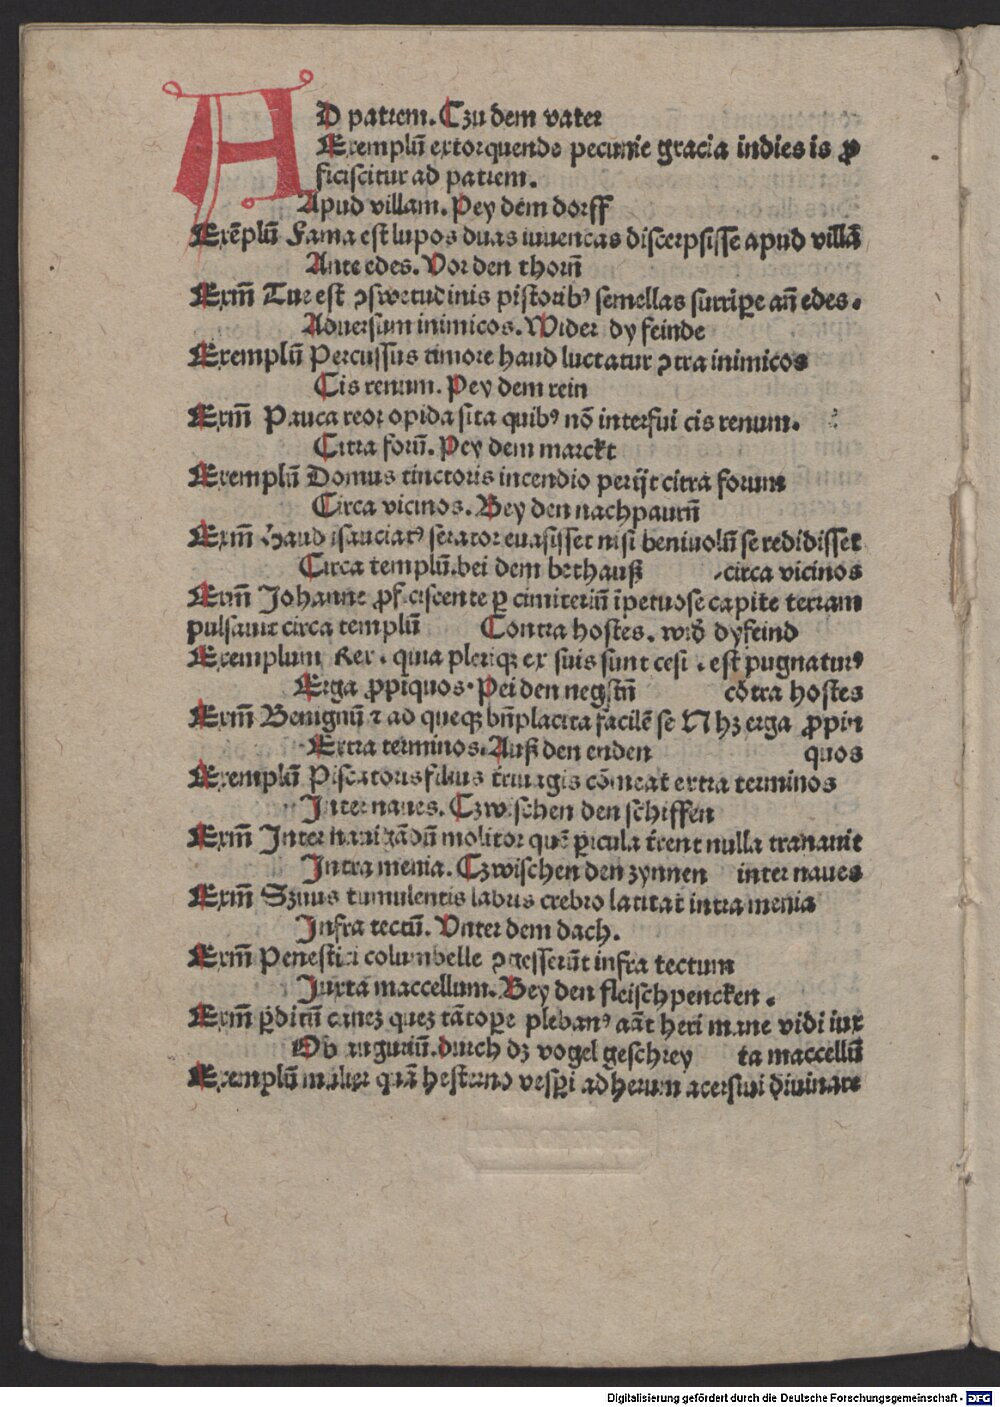 AD patrem. Czu dem vater
Exemplū extorquende pecunie gracia indies is ꝓ
ficiscitur ad patrem.
Apud villam. Pey dem dorff
Exēplū Fama est lupos duas iuuencas discerpsisse apud villā
Ante edes. Vor den thorn̄
Exm̄ Tue est ꝯswetudinis pistoribꝰ semellas surripe an̄ edes.
Aduersum inimicos. Wider dy feinde
Exemplū Percussus timore haud luctatur ꝯtra inimicos
Cis renum. Pey dem rein
Exm̄ Pauca reor opida sita quibꝰ nō interfui cis renum.
Citra forū. Pey dem marckt
Exemplū Domus tinctoris incendio perijt citra forum
Circa vicinos. Bey den nachpaurn̄
Exm̄ Haud sauciatꝰ serator euasisset nisi beniuolū se redidisset
Circa templū. bei dem bethauß circa vicinos
Exm̄ Johanne ꝓficiscente ꝑ cimiteriū īpetuose capite terram
pulsauit circa templū Contra hostes. wid̄ dyfeind
Exemplum Rex. quia pleriqꝫ ex suis sunt cesi. est pugnaturꝰ
Erga ꝓpīquos. Pei den negstn̄ cōtra hostes
Exm̄ Benignū ⁊ ad queqꝫ bn̄placita facilē se N hꝫ erga ꝓpin
Extra terminos. Auß den enden quos
Exemplū Piscatoris filius t̄miagis cōmeat extra terminos
Inter naues. Czwischen den schiffen
Exm̄ Inter nauigādū molitor quē ꝑicula t̄rent nulla tranauit
Intra menia. Czwischen den zynnen inter naues
Exm̄ Sznus tumulentis labris crebro latitat intra menia
Infra tectū. Vnter dem dach.
Exm̄ Penestici columbelle ꝯgesserūt infra tectum
Juxta maccellum. Bey den fleischpencken.
Exm̄ ꝑditū canez quez tātoꝑe plebanꝰ aāt heri mane vidi iux
Ob auguriū. durch dꝫ vogel geschrey ta maccellū
Exemplū mulier quā hesterno vesꝑi ad herum acersiui diuinare
Digitalisierung gefördert durch die Deutsche Forschungsgemeinschaft - DFG